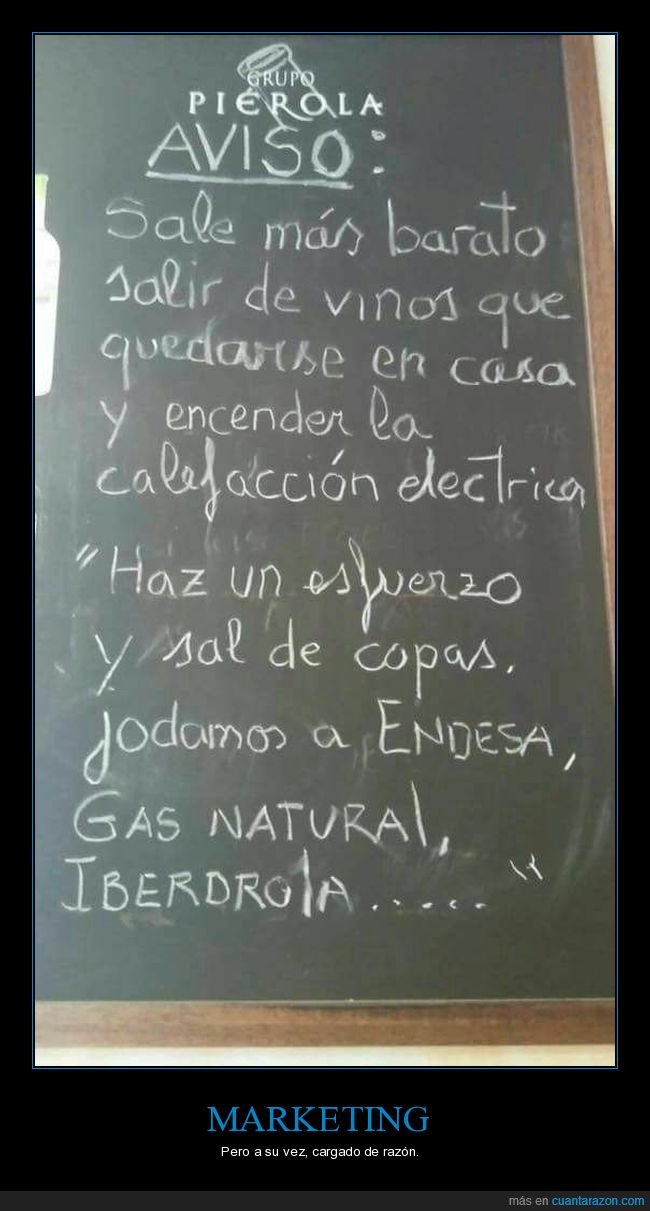 GRUPO
PIÉROLA
AVISO:
Sale más barato
salir de vinos que
quedarse en casa
y encender la
calefacción electrica
"Haz un esfuerzo
y sal de copas.
Jodamos a ENDESA,
GAS NATURAL,
IBERDROLA......"
MARKETING
Pero a su vez, cargado de razón.
más en cuantarazon.com